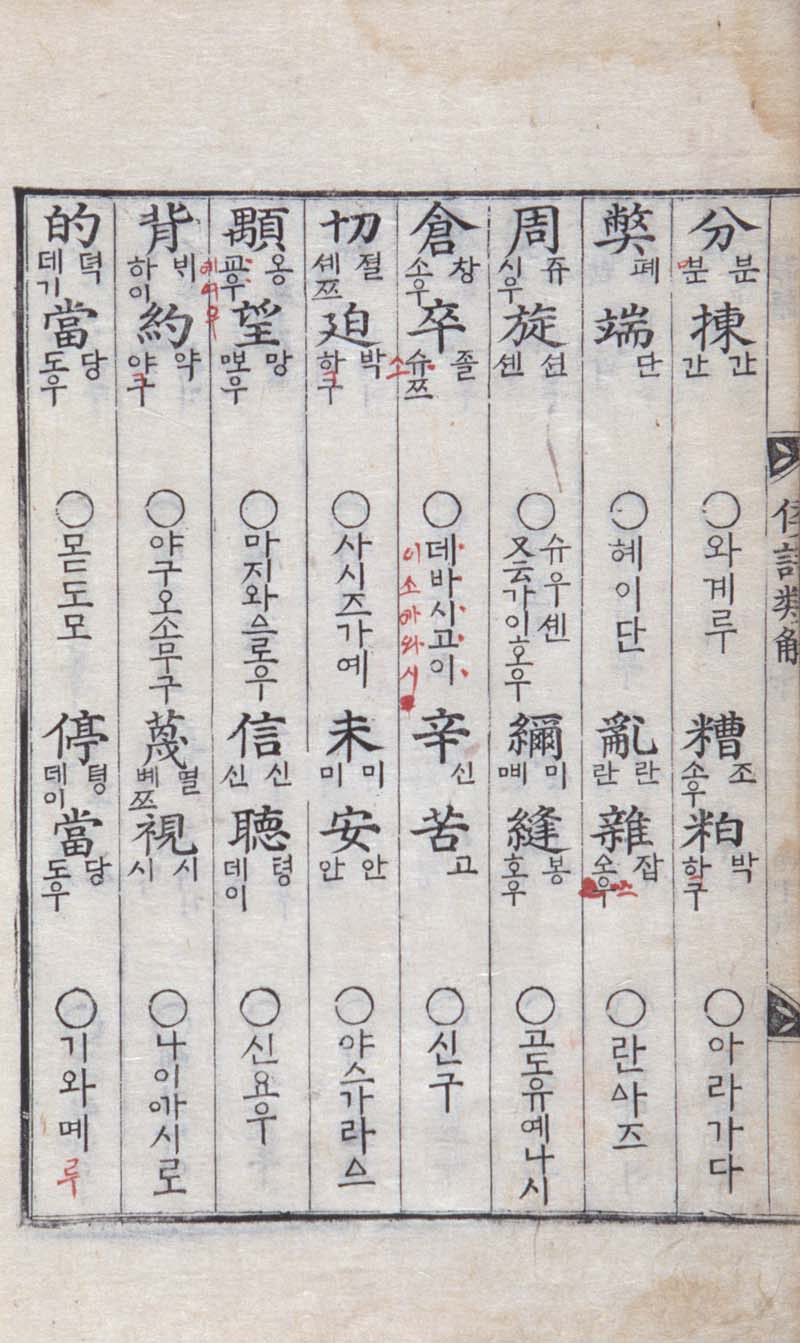 倭語類解
分 분 분 揀 간 간 ○와계루 糟 조 소우 粕 박 하구 ○아라가다
弊 폐 端 단 ○혜이단 亂 란 란 雜 잡 ○란사즈
周 쥬 시우 旋 션 셴 ○슈우셴 又云가이호우 彌 미 縫 봉 호우 ○고도유예나시
倉 창 소우 卒 졸 슈쯔 소 ○데바시고이 이소가와시 辛 신 苦 고 ○신구
切 졀 셰쯔 迫 박 하구 ○사시즈가예 未 미 미 安 안 안 ○야스가라
顒 옹 望 망 ○마지와 信 신 신 聽 텽 데이 ○신요우
背 ᄇᆡ 하이 約 약 야구 ○야구오소무구 蔑 멸 볘쯔 視 시 시 ○나이 시로
的 뎍 데기 當 당 도우 ○몯도모 停 텽 데이 當 당 도우 ○기와메루